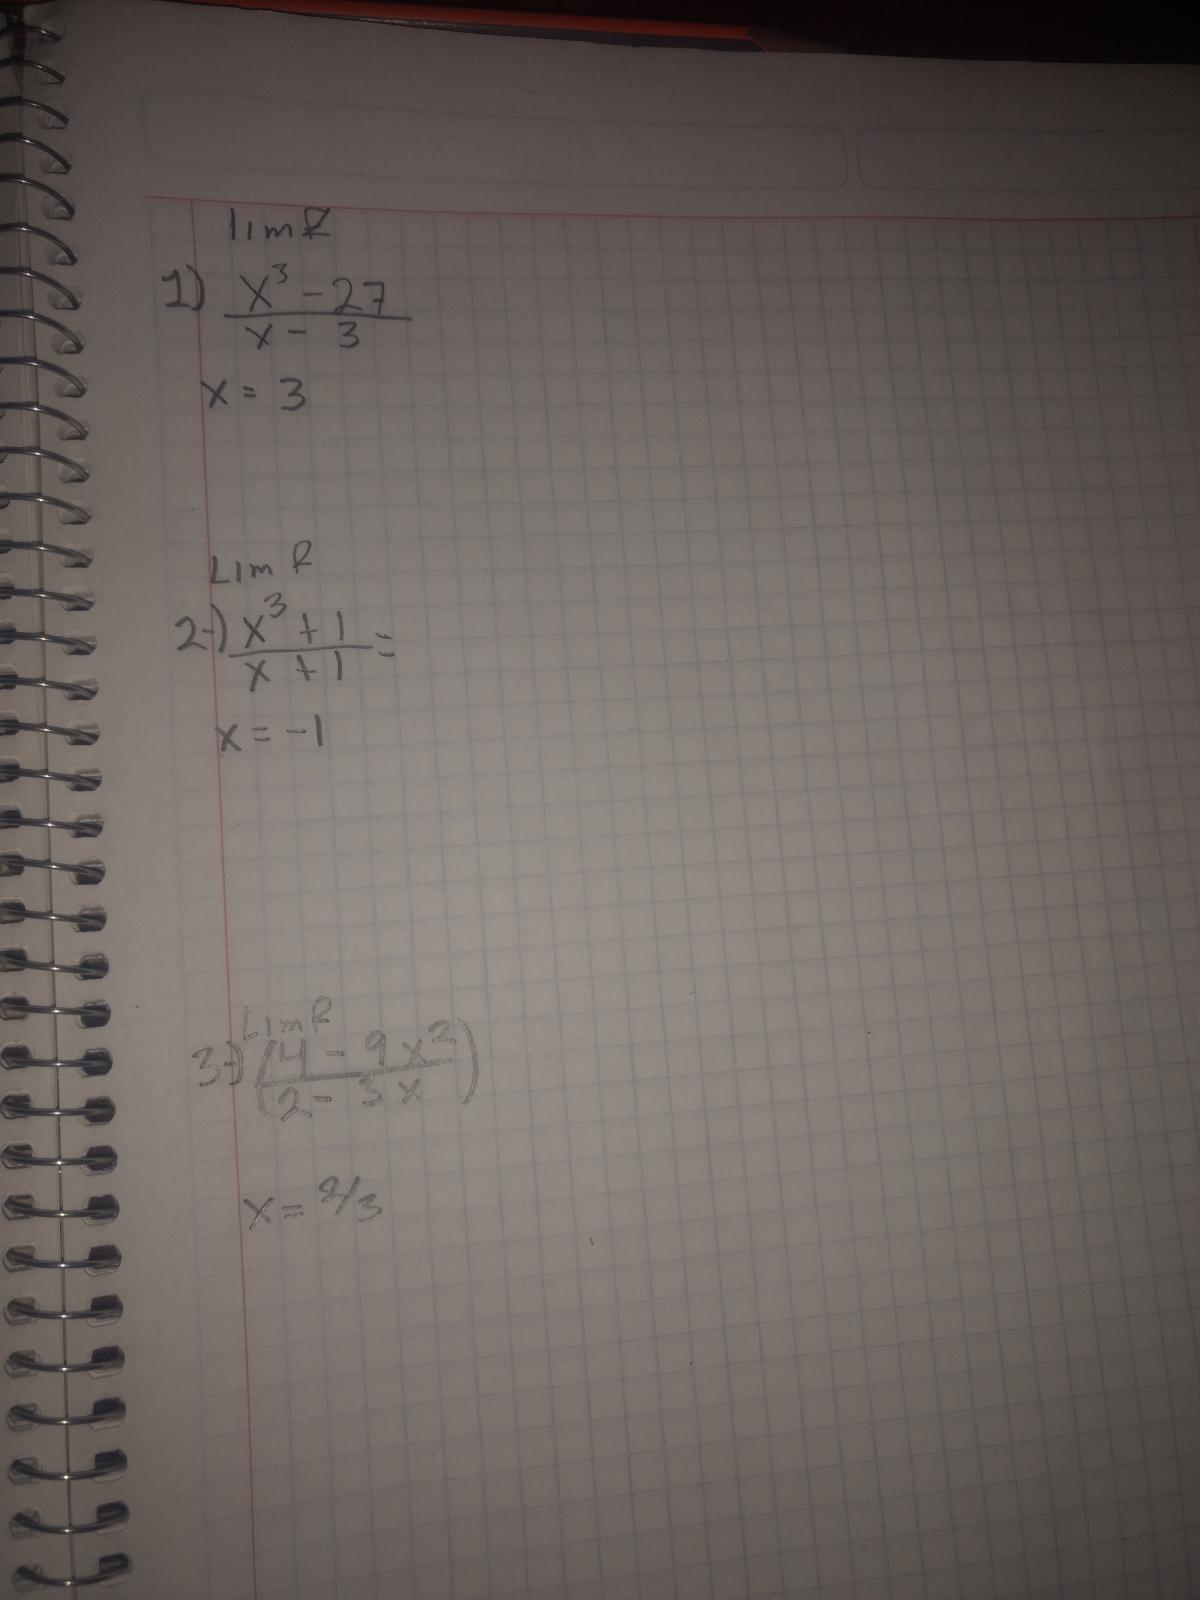 lim R
1) x³ - 27
x - 3
x = 3
Lim R
2-) x³ + 1 =
x + 1
x = -1
Lim R
3-) (4 - 9x²)
(2 - 3x)
x = 2/3